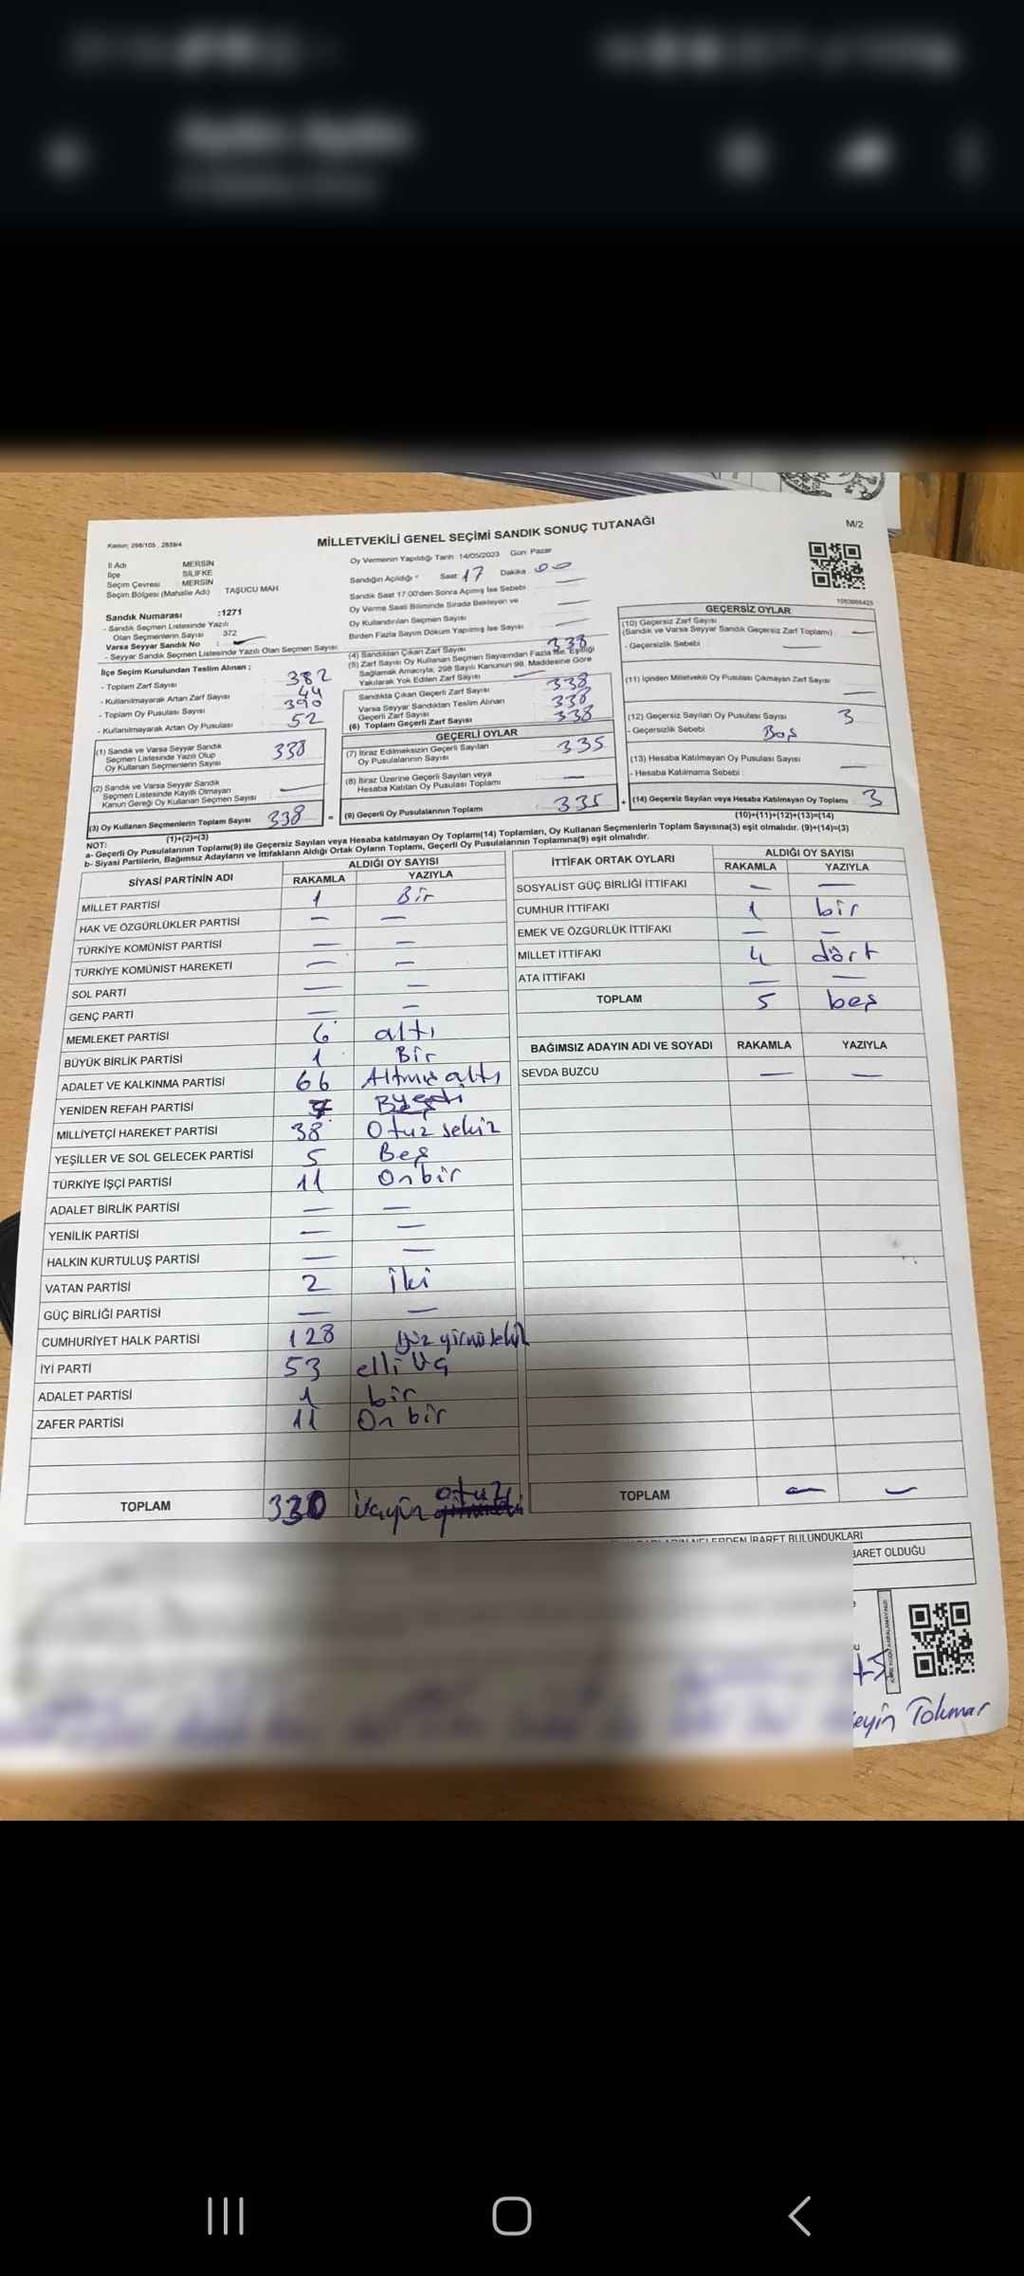 Kanun: 298/105 , 2839/4
MİLLETVEKİLİ GENEL SEÇİMİ SANDIK SONUÇ TUTANAĞI
M/2
İl Adı MERSİN
İlçe SİLİFKE
Seçim Çevresi MERSİN
Seçim Bölgesi (Mahalle Adı) TAŞUCU MAH.
Sandık Numarası :1271
- Sandık Seçmen Listesinde Yazılı
Olan Seçmenlerin Sayısı 372
Varsa Seyyar Sandık No :
- Seyyar Sandık Seçmen Listesinde Yazılı Olan Seçmen Sayısı
Oy Vermenin Yapıldığı Tarih :14/05/2023 Gün: Pazar
Sandığın Açıldığı Saat 17 Dakika 00
Sandık Saat 17.00'den Sonra Açılmış İse Sebebi
Oy Verme Saati Bitiminde Sırada Bekleyen ve
Oy Kullandırılan Seçmen Sayısı
Birden Fazla Sayım Döküm Yapılmış İse Sayısı
İlçe Seçim Kurulundan Teslim Alınan :
- Toplam Zarf Sayısı 382
- Kullanılmayarak Artan Zarf Sayısı 44
- Toplam Oy Pusulası Sayısı 390
- Kullanılmayarak Artan Oy Pusulası 52
(1) Sandık ve Varsa Seyyar Sandık
Seçmen Listesinde Yazılı Olup
Oy Kullanan Seçmenlerin Sayısı 338
(2) Sandık ve Varsa Seyyar Sandık
Seçmen Listesinde Kayıtlı Olmayan
Kanun Gereği Oy Kullanan Seçmen Sayısı —
(3) Oy Kullanan Seçmenlerin Toplam Sayısı 338
(1)+(2)=(3)
(4) Sandıktan Çıkan Zarf Sayısı 338
(5) Zarf Sayısı Oy Kullanan Seçmen Sayısından Fazla İse, Eşitliği
Sağlamak Amacıyla; 298 Sayılı Kanunun 98. Maddesine Göre
Yakılarak Yok Edilen Zarf Sayısı —
Sandıkta Çıkan Geçerli Zarf Sayısı 338
Varsa Seyyar Sandıktan Teslim Alınan
Geçerli Zarf Sayısı 338
(6) Toplam Geçerli Zarf Sayısı 338
GEÇERLİ OYLAR
(7) İtiraz Edilmeksizin Geçerli Sayılan
Oy Pusulalarının Sayısı 335
(8) İtiraz Üzerine Geçerli Sayılan veya
Hesaba Katılan Oy Pusulası Toplamı —
= (9) Geçerli Oy Pusulalarının Toplamı 335
GEÇERSİZ OYLAR
(10) Geçersiz Zarf Sayısı
(Sandık ve Varsa Seyyar Sandık Geçersiz Zarf Toplamı) —
- Geçersizlik Sebebi —
(11) İçinden Milletvekili Oy Pusulası Çıkmayan Zarf Sayısı —
(12) Geçersiz Sayılan Oy Pusulası Sayısı 3
- Geçersizlik Sebebi Boş
(13) Hesaba Katılmayan Oy Pusulası Sayısı —
- Hesaba Katılmama Sebebi : —
+ (14) Geçersiz Sayılan veya Hesaba Katılmayan Oy Toplamı 3
(10)+(11)+(12)+(13)=(14)
NOT:
a- Geçerli Oy Pusulalarının Toplamı(9) ile Geçersiz Sayılan veya Hesaba katılmayan Oy Toplamı(14) Toplamları, Oy Kullanan Seçmenlerin Toplam Sayısına(3) eşit olmalıdır. (9)+(14)=(3)
b- Siyasi Partilerin, Bağımsız Adayların ve İttifakların Aldığı Ortak Oyların Toplamı, Geçerli Oy Pusulalarının Toplamına(9) eşit olmalıdır.
SİYASİ PARTİNİN ADI ALDIĞI OY SAYISI
RAKAMLA YAZIYLA
MİLLET PARTİSİ 1 Bir
HAK VE ÖZGÜRLÜKLER PARTİSİ — —
TÜRKİYE KOMÜNİST PARTİSİ — —
TÜRKİYE KOMÜNİST HAREKETİ — —
SOL PARTİ — —
GENÇ PARTİ — —
MEMLEKET PARTİSİ 6 altı
BÜYÜK BİRLİK PARTİSİ 1 Bir
ADALET VE KALKINMA PARTİSİ 66 Altmış altı
YENİDEN REFAH PARTİSİ 7
MİLLİYETÇİ HAREKET PARTİSİ 38 Otuz sekiz
YEŞİLLER VE SOL GELECEK PARTİSİ 5 Beş
TÜRKİYE İŞÇİ PARTİSİ 11 Onbir
ADALET BİRLİK PARTİSİ — —
YENİLİK PARTİSİ — —
HALKIN KURTULUŞ PARTİSİ — —
VATAN PARTİSİ 2 iki
GÜÇ BİRLİĞİ PARTİSİ — —
CUMHURİYET HALK PARTİSİ 128 yüz yirmi sekiz
İYİ PARTİ 53 elli üç
ADALET PARTİSİ 1 bir
ZAFER PARTİSİ 11 On bir
TOPLAM 330 üçyüz otuz
İTTİFAK ORTAK OYLARI ALDIĞI OY SAYISI
RAKAMLA YAZIYLA
SOSYALİST GÜÇ BİRLİĞİ İTTİFAKI — —
CUMHUR İTTİFAKI 1 bir
EMEK VE ÖZGÜRLÜK İTTİFAKI — —
MİLLET İTTİFAKI 4 dört
ATA İTTİFAKI — —
TOPLAM 5 beş
BAĞIMSIZ ADAYIN ADI VE SOYADI RAKAMLA YAZIYLA
SEVDA BUZCU — —
TOPLAM — —
NELERDEN İBARET BULUNDUKLARI
BARET OLDUĞU
eyin Tokmar